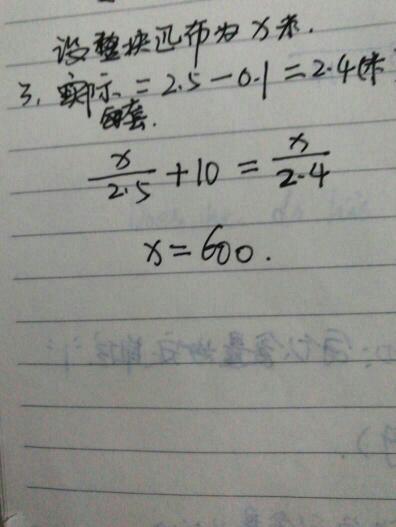 设整块匹布为x米.
3. 实际 = 2.5 - 0.1 = 2.4(米
每套.
x/2.5 + 10 = x/2.4
x = 600.